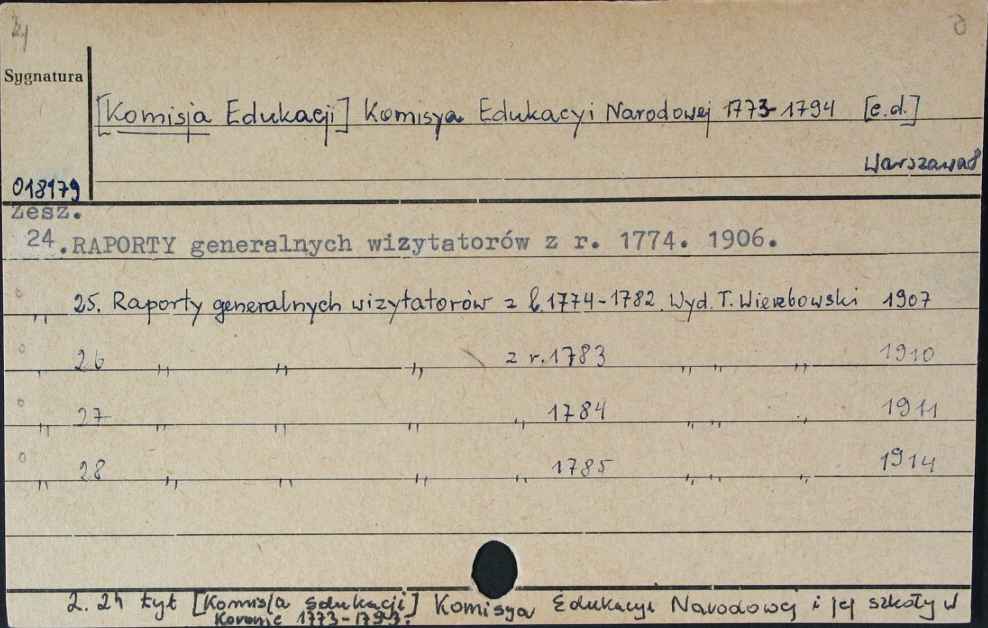 24
Sygnatura
[Komisja Edukacji] Komisya Edukacyi Narodowej 1773-1794 [c.d.]
Warszawa
018179
Zesz.
24. RAPORTY generalnych wizytatorów z r. 1774. 1906.
„ 25. Raporty generalnych wizytatorów z l. 1774-1782. Wyd. T. Wierzbowski 1907
„ 26 „ „ „ z r. 1783 „ „ „ 1910
„ 27 „ „ „ „ 1784 „ „ „ 1911
„ 28 „ „ „ „ 1785 „ „ „ 1914
Z. 24 tyt [Komisja Edukacji] Komisya Edukacyi Narodowej i jej szkoły w
Koronie 1773-1794.